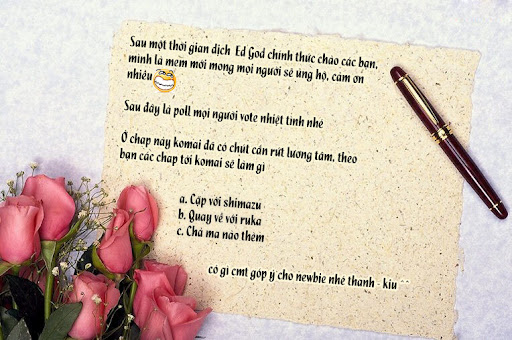 Sau một thời gian dịch Ed God chính thức chào các bạn,
mình là mem mới mong mọi người sẽ ủng hộ, cảm ơn
nhiều
Sau đây là poll mọi người vote nhiệt tình nhé
Ở chap này komai đã có chút cắn rứt lương tâm, theo
bạn các chap tới komai sẽ làm gì
a. Cặp với shimazu
b. Quay về với ruka
c. Chả ma nào thèm
có gì cmt góp ý cho newbie nhé thanh - kiu ^^